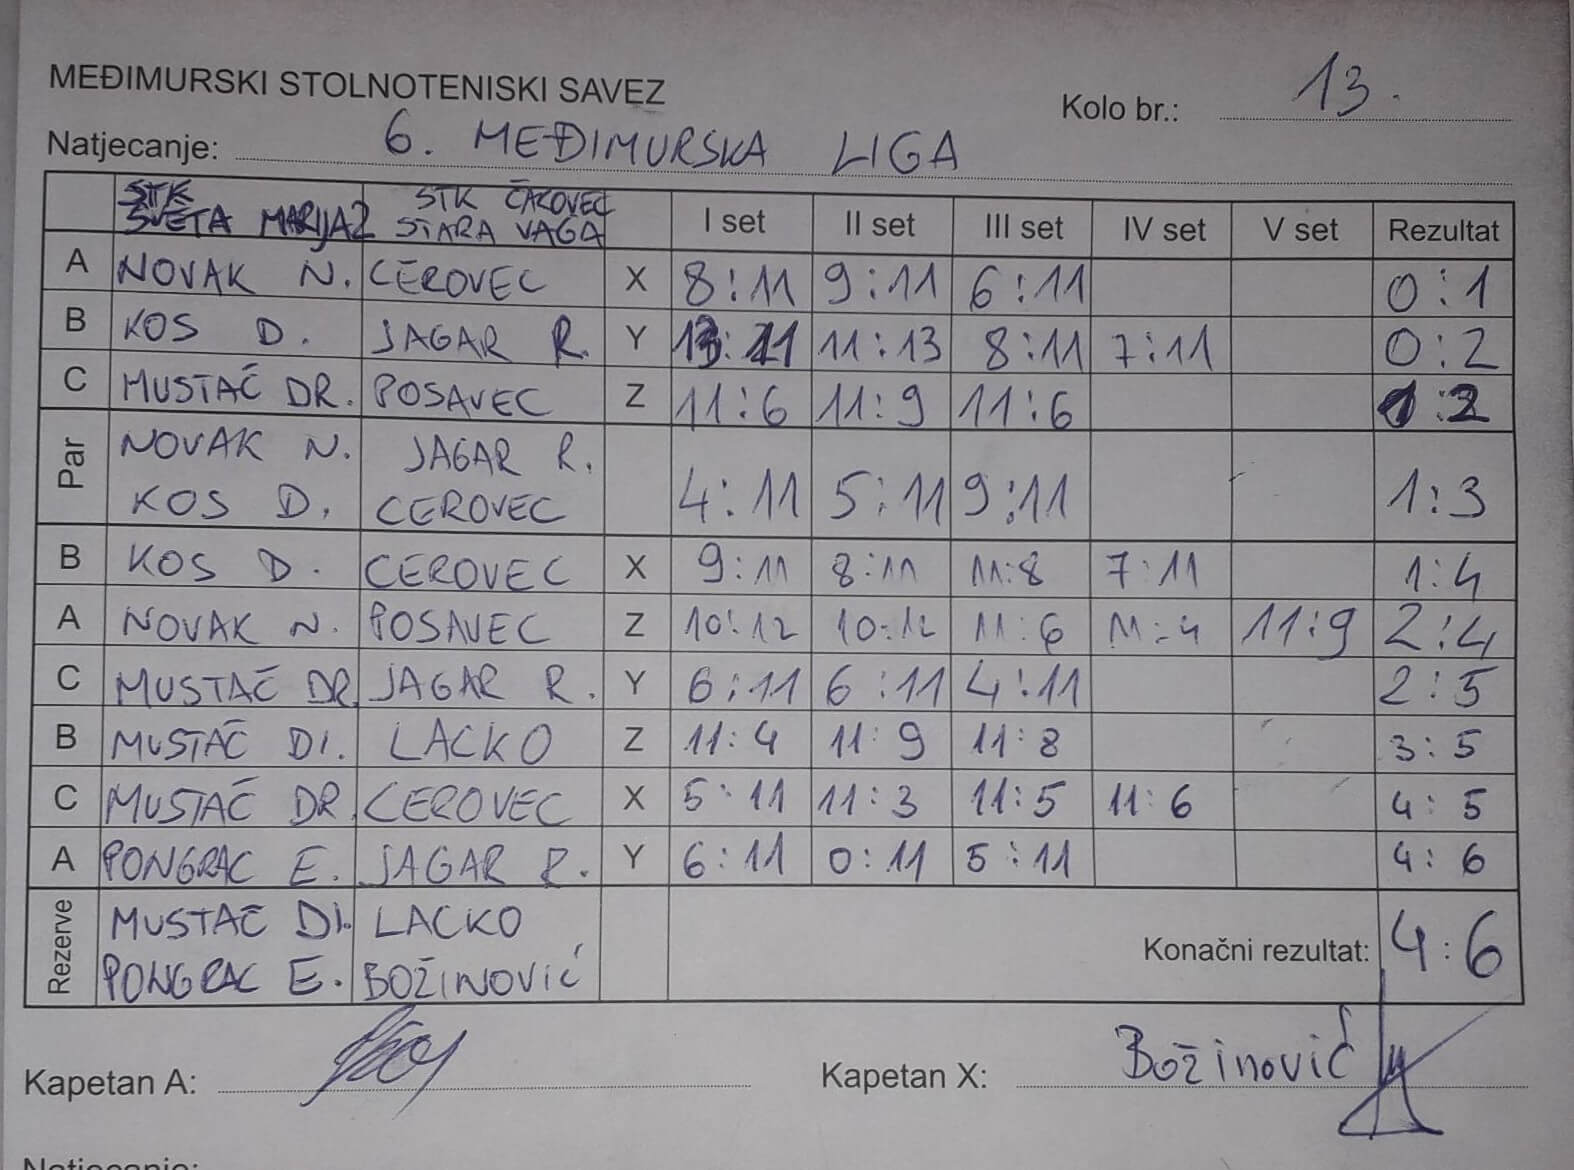 MEĐIMURSKI STOLNOTENISKI SAVEZ
Kolo br.: 13.
Natjecanje: 6. MEĐIMURSKA LIGA
STK SVETA MARIJA 2 STK ČAKOVEC STARA VAGA I set II set III set IV set V set Rezultat
A NOVAK N. CEROVEC X 8:11 9:11 6:11 0:1
B KOS D. JAGAR R. Y 13:11 11:13 8:11 7:11 0:2
C MUSTAČ DR. POSAVEC Z 11:6 11:9 11:6 1:2
Par NOVAK N. JAGAR R.
KOS D. CEROVEC 4:11 5:11 9:11 1:3
B KOS D. CEROVEC X 9:11 8:11 11:8 7:11 1:4
A NOVAK N. POSAVEC Z 10:12 10:12 11:6 11:4 11:9 2:4
C MUSTAČ DR JAGAR R. Y 6:11 6:11 4:11 2:5
B MUSTAČ DI. LACKO Z 11:4 11:9 11:8 3:5
C MUSTAČ DR. CEROVEC X 5:11 11:3 11:5 11:6 4:5
A PONGRAC E. JAGAR R. Y 6:11 0:11 5:11 4:6
Rezerve MUSTAČ DI. LACKO
PONGRAC E. BOŽINOVIĆ Konačni rezultat: 4:6
Kapetan A: Kapetan X: Božinović
Natjecanje: